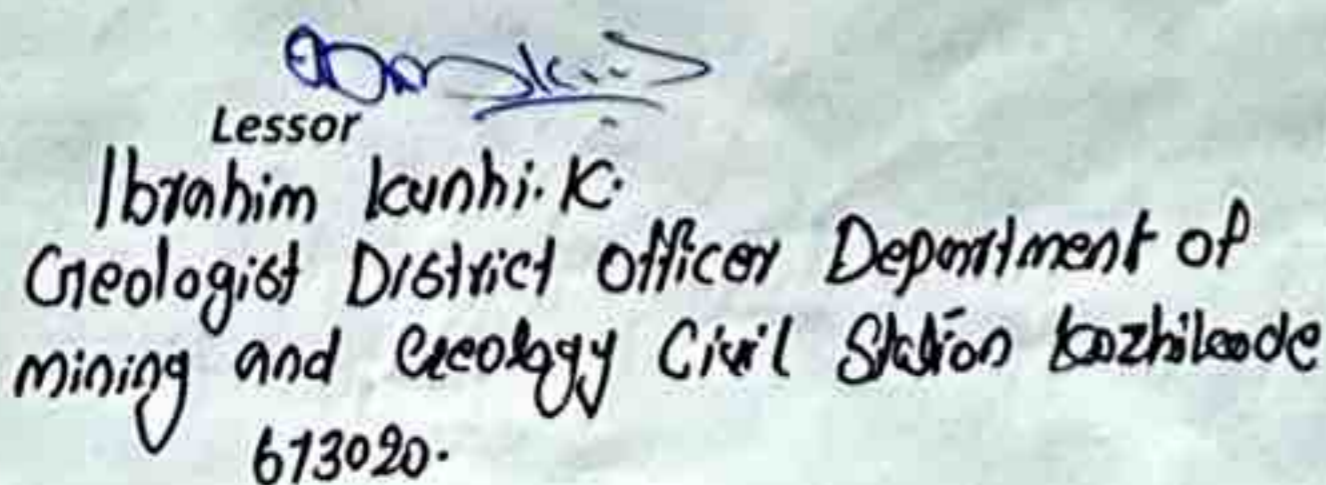 Lessor
Ibrahim kunhi. K.
Geologist District Officer Department of
mining and Geology Civil Station kozhikode
673020.